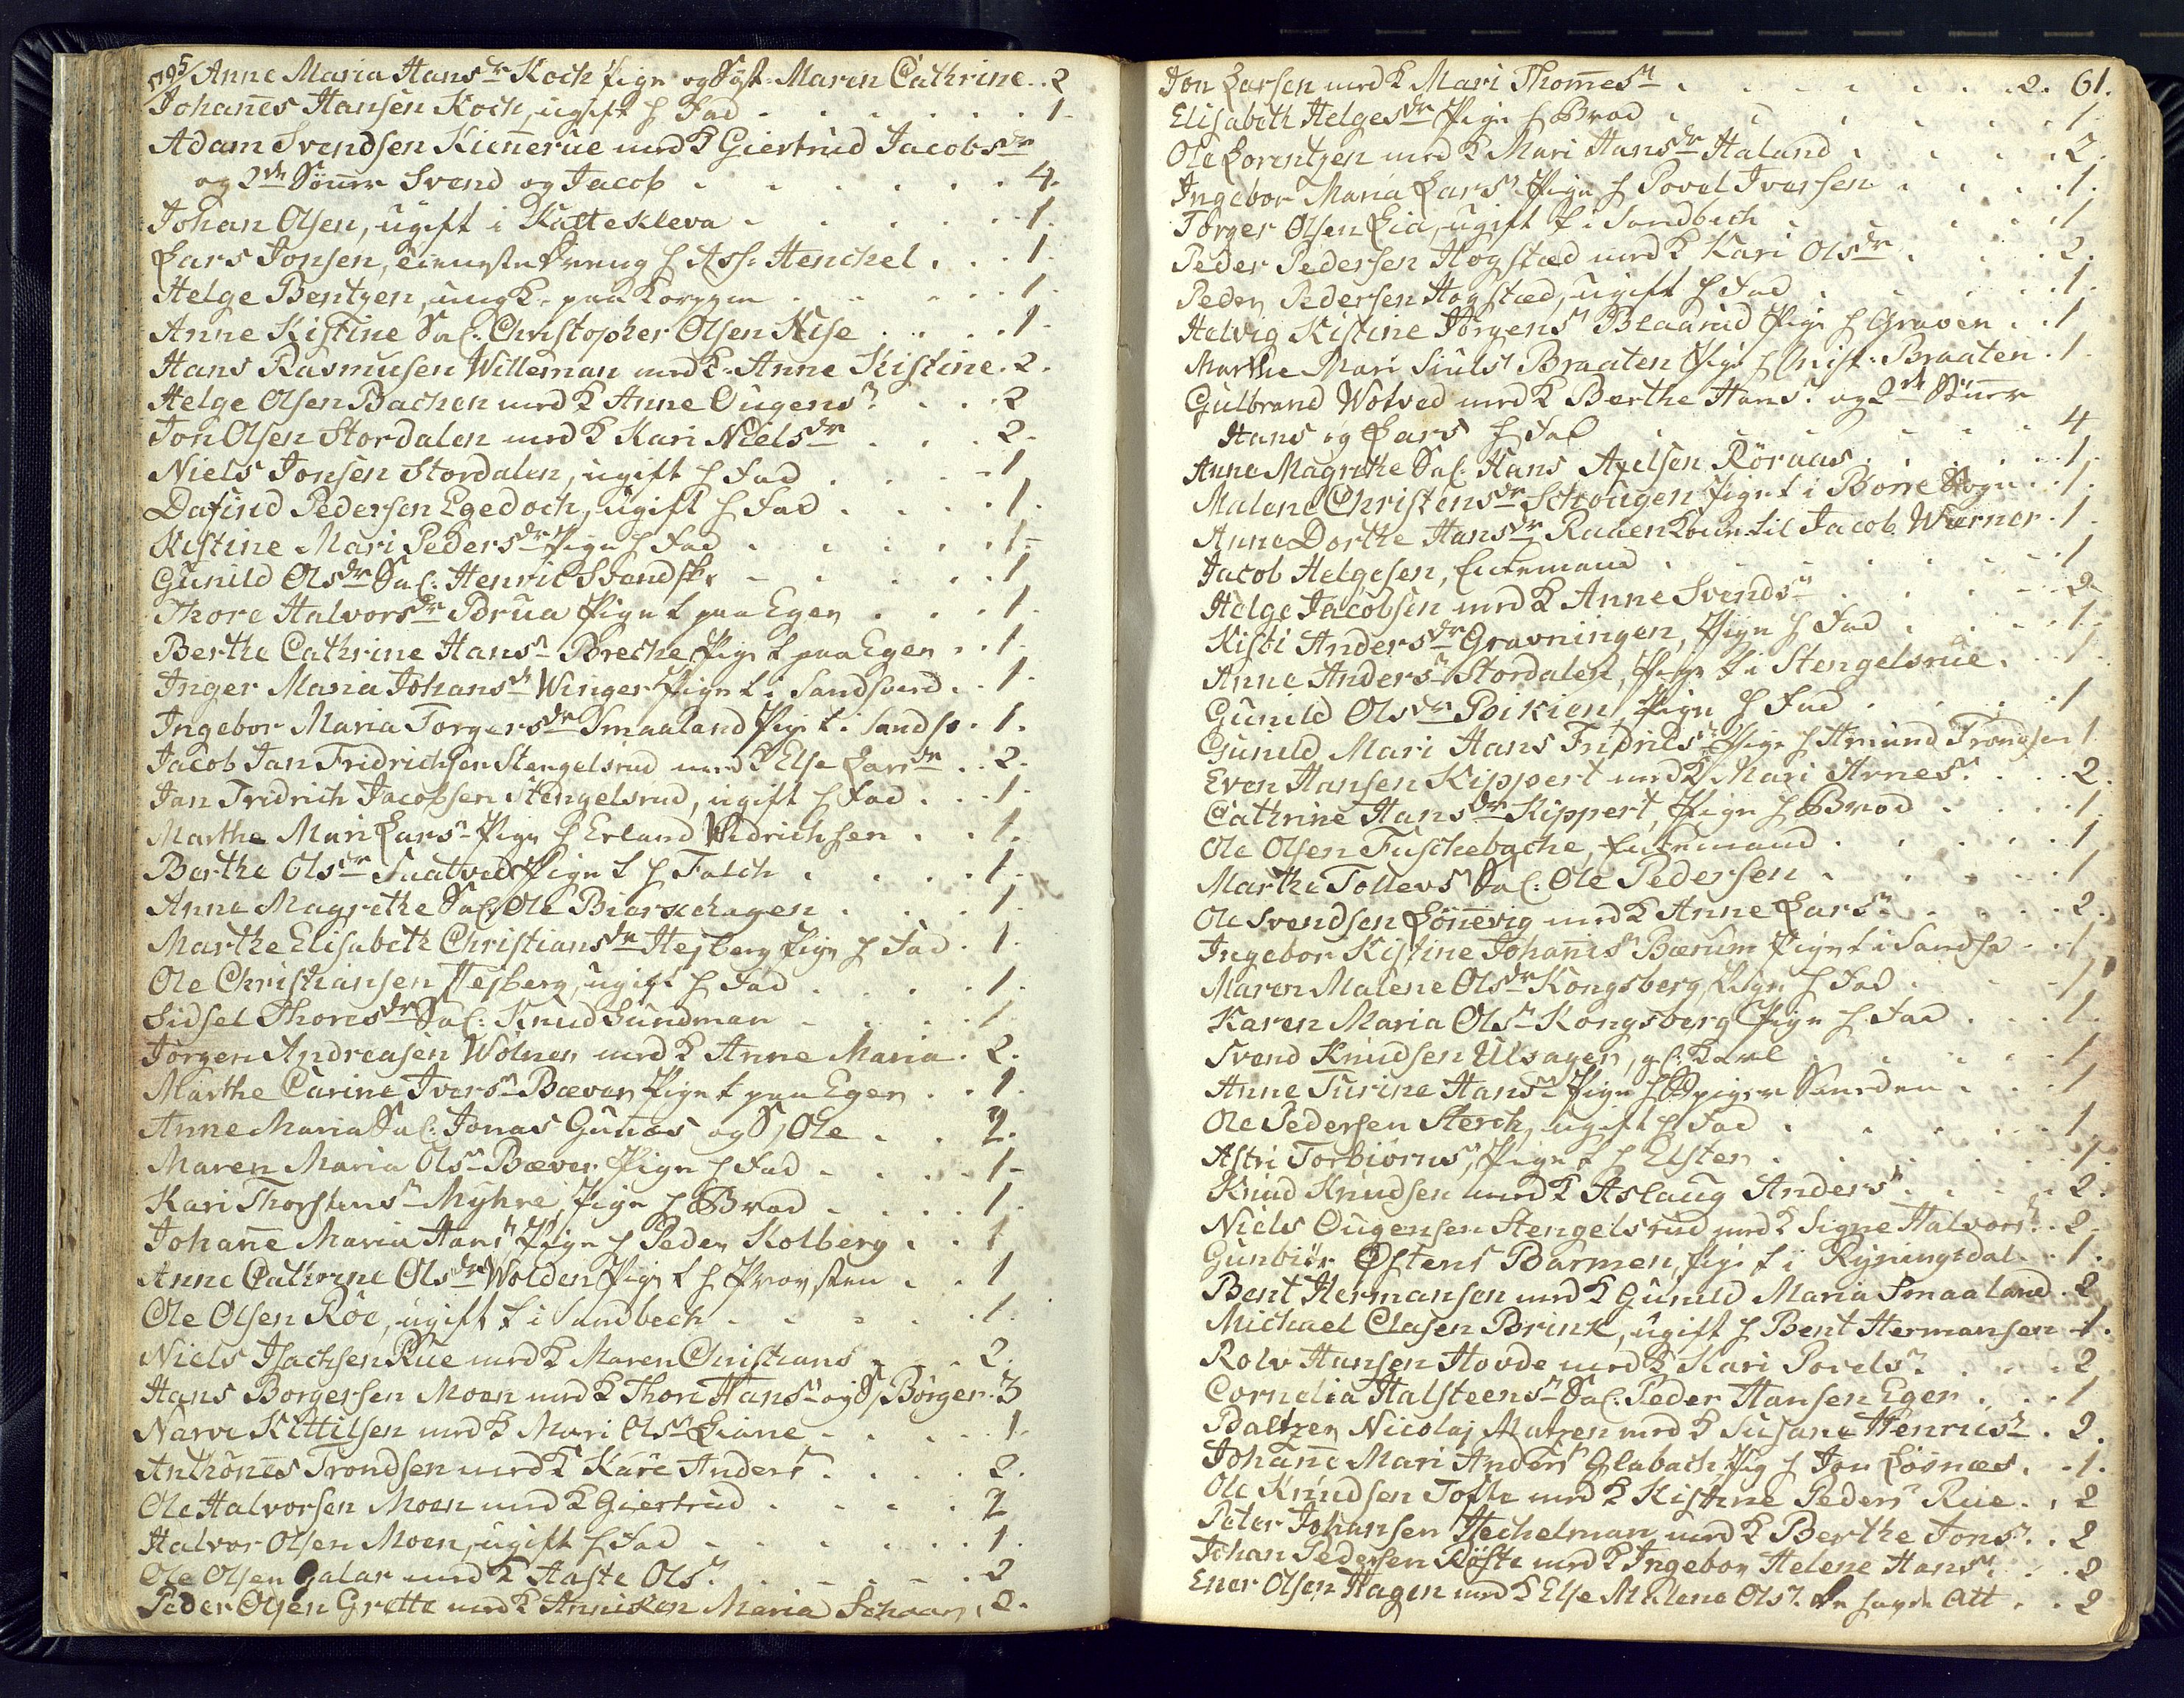 1795/ Anne Maria Hansdr Koch Pige og Syst. Maren Cathrine . . 2
Johanes Hansen Koch, ugift h Fad . . . 1
Adam Svendsen Kienerue med K Giertrud Jacobsdr
og 2de Sönner Svend og Jacob . . . 4.
Johan Olsen, ugift i Katteskleva . . . 1.
Lars Jonsen, tieneste Dreng h Ass. Henchel . . . 1.
Helge Bentzen, ung K. paa Korpgen . . . 1.
Anne Kistine Sal. Christopher Olsen Nise . . . 1.
Hans Rasmusen Willeman med K. Anne Kistine . 2.
Helge Olsen Bachen med K Anne Ougens? . . . 2
Jon Olsen Stordalen med K Kari Nielsdr . . . 2.
Niels Jonsen Stordalen, ugift h Fad . . . 1
Dafind Pedersen Egedoch, ugift h Fad . . . 1.
Kistine Mari Pedersdr Pige h Fad . . . 1.
Gunild Olsdr Sal. Henric Svendsk . . . 1
Thore Halvorsdr Brua Pige t paa Eger . . . 1.
Berthe Cathrine Hansn Breche, Pige t paa Eger . . 1.
Inger Maria Johansn Winger Pige t i Sandsverd . . 1.
Ingebor Maria Torgersdr Smaaland Pige t i Sandsv . 1.
Jacob Jan Fridrichsen Stengelsrud med K Else Larsdr . . 2.
Jan Fridrich Jacobsen Stengelsrud, ugift h Fad . . . 1.
Marthe Mari Larsn Pige h Erland Widrichsen . . . 1.
Berthe Olsdr Saatved Pige t h Falch . . . 1.
Anne Magrethe Sal. Ole Bierschagen . . . 1.
Marthe Elisabeth Christiansdr Hesberg Pige h Fad . 1.
Ole Christiansen Hesberg, ugift h Fad . . . 1.
Sidsel Thoresdr Sal. Knud Sundman . . . 1
Jörgen Andreasen Wolner med K Anne Maria . 2.
Marthe Carine Iversn Bæver Pige t paa Eger . . 1.
Anne Maria Sal. Jonas Gunæs og S, Ole . . . 2.
Maren Maria Olsn Bæver Pige h Fad . . . 1
Kari Thorstensn Myhre, Pige h Brod . . . 1.
Johane Maria Hansn Pige h Peder Kolberg . . . 1
Anne Cathrine Olsdr Wolden Pige t h Provsten . . . 1
Ole Olsen Röe, ugift t i Sandbech . . . 1.
Niels Isachsen Rue med K Maren Christians . . . 2.
Hans Borgersen Moen med K Thore Hansn og S/ Börger . 3
Narve Kittilsen med K Mari Olsn Liane . . . 1.
Anthönes Trondsen med K Kari Andersn . . . 2.
Ole Halvorsen Moen med K Giertrud . . . 2
Halvor Olsen Moen, ugift h Fad . . . 1.
Ole Olsen Galar med K Haste Olsn . . . 2
Peder Olsen Grette med K Anniken Maria Schaar . 2.
Jon Larsen med K Mari Thomesn . . . 2. 61.
Elisabeth Helgesdr Pige h Brod . . . 1
Ole Lorentzen med K Mari Hansdr Haland . . . 2.
Ingebor Maria Larsn Pige h Povel Iversen . . . 1.
Torger Olsen Lia, ugift t i Sandbech . . . 1
Peder Pedersen Hogstæd med K Kari Olsdr . . . 2.
Peder Pedersen Hogstæd, ugift h Fad . . . 1.
Helvig Kistine Jörgensn Blaarud Pige h Graven . . 1
Marthe Mari Siulsn Braaten Pige h Crist. Braaten . 1.
Gulbrand Wotved med K Berthe Hansn og 2de Sönner
Hans og Lars h Fad . . . 4
Anne Magrethe Sal. Hans Axelsen Röraas . . . 1.
Malene Christensdr Schougen Pige t i Borre Sogn . . 1.
Anne Dorthe Hansdr Raden Kone til Jacob Wærner . 1.
Jacob Helgesen, Enkemand . . . 1
Helge Jacobsen med K Anne Svendsn . . . 2.
Kisti Andersdr Gravningen, Pige h Fad . . . 1.
Anne Andersn Stordalen, Pige t i Stengelsrue . . 1.
Gunild Olsdr Poikien, Pige h Fad . . . 1
Gunild Mari Hans Fridrichsn Pige h Amund Trondsen 1
Even Hansen Kippert med K Mari Arnesn . . . 2.
Cathrine Hansdr Kippert, Pige h Brod . . . 1.
Ole Olsen Fuschebache, Enkemand . . . 1
Marthe Tollevsn Sal. Ole Pedersen . . . 1
Ole Svendsen Lönevig med K Anne Larsn . . . 2.
Ingebor Kistine Johanisn Bærum Pige t i Sandsv . . . 1.
Maren Malene Olsdr Kongsberg Pige h Fad . . . 1
Karen Maria Olsn Kongsberg Pige h Fad . . . 1.
Svend Knudsen Ulsager, gl. Karl . . . 1
Anne Turine Hansn Pige h Spiger Smeden . . . 1
Ole Pedersen Sterch, ugift h Fad . . . 1
Astri Torbiörnsn, Pige t h Elster . . . 1.
Knud Knudsen med K Aslaug Andersn . . . 2.
Niels Ougensen Stengelsrud med K Signe Halvorsn . . 2.
Gunbiör Østens Barmen, Pige t i Ryningsdal . . 1.
Bent Hermansen med K Gunild Maria Smaaland . 2
Michael Clasen Brink, ugift h Bent Hermansen . 1.
Rolv Hansen Hovde med K Kari Povelsn . . . 2
Cornelia Halsteensn Sal. Peder Hansen Eger . . . 1
Baltzer Nicolaj Matzen med K Susane Henricsn . 2.
Johane Mari Andersn Glabach Pig h Jon Lösnæs . . 1.
Ole Knudsen Tofte med K Kistine Pedersn Rue . . 2
Peter Johansen Hechelman med K Berthe Jonsn . . 2
Johan Pedersen Röste med K Ingebor Helene Hansn . . 2
Ener Olsen Hagen med K Else Malene Olsn . . . Att . . 2